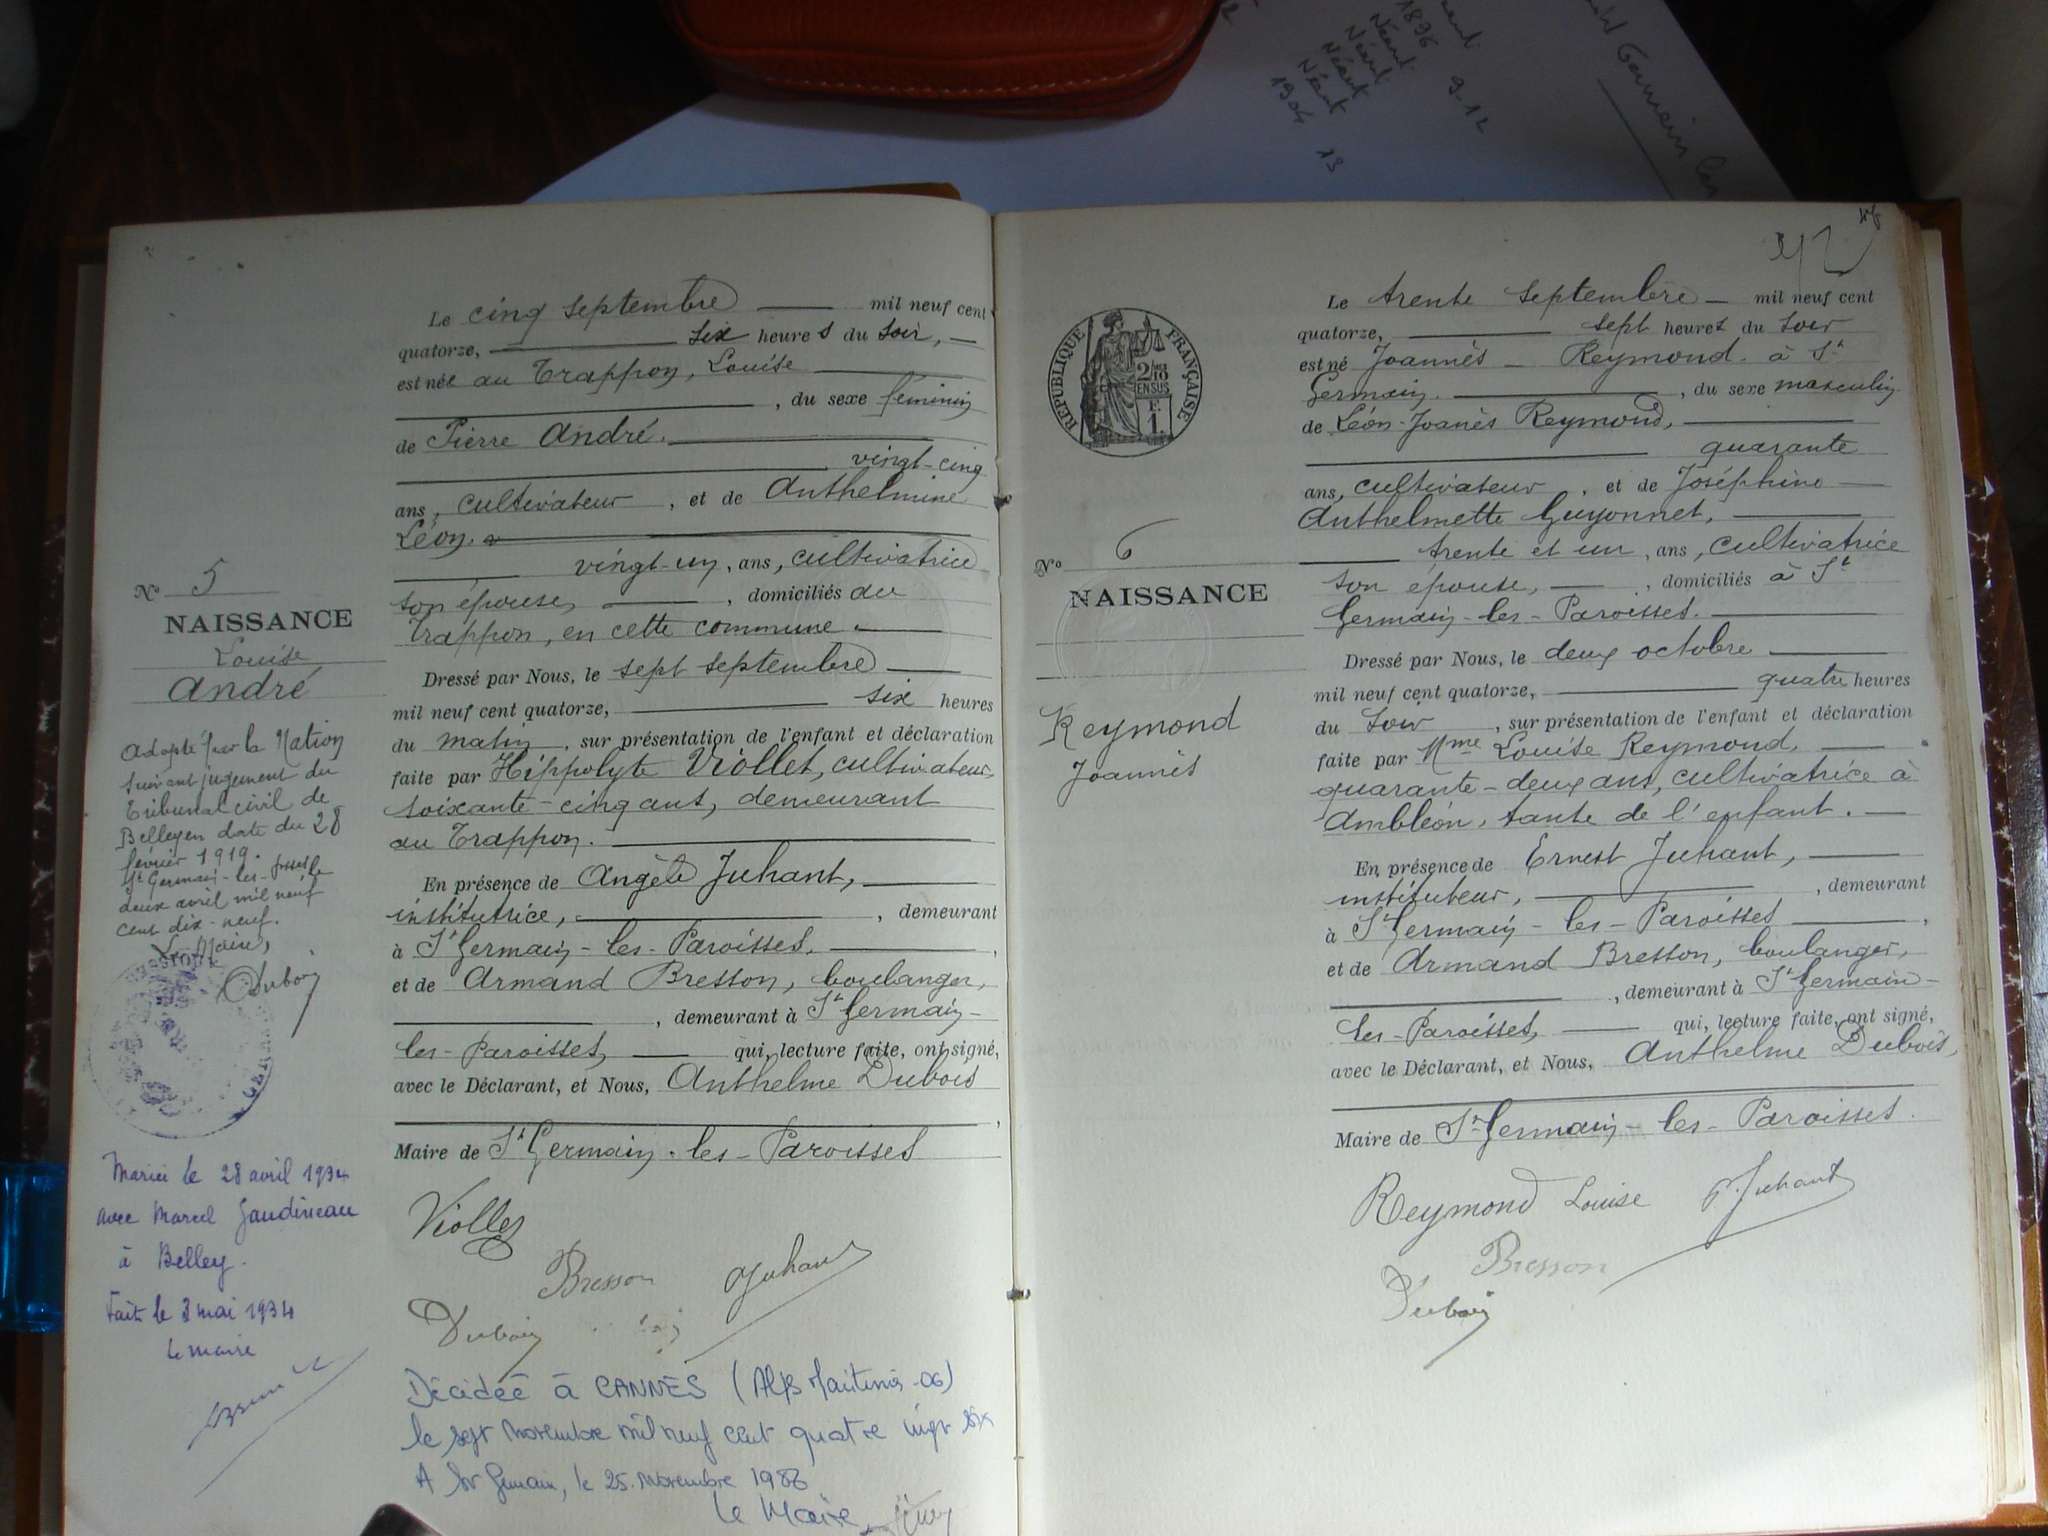 1896
Néant
Néant
Néant
Néant
1904
9.12
13
Germain
Le cinq septembre mil neuf cent
quatorze, six heures du soir,
est née au Trappon, Louise
, du sexe féminin
de Pierre André.
vingt-cinq
ans, cultivateur, et de Anthelmine
Léon.
vingt-un, ans, cultivatrice
son épouse, , domiciliés au
Trappon, en cette commune.
Dressé par Nous, le sept septembre
mil neuf cent quatorze, six heures
du matin, sur présentation de l'enfant et déclaration
faite par Hippolyte Viollet, cultivateur,
soixante-cinq ans, demeurant
au Trappon.
En présence de Angèle Juhant,
institutrice, , demeurant
à St Germain-les-Paroisses,
et de Armand Bresson, boulanger,
, demeurant à St Germain-
les-Paroisses, qui, lecture faite, ont signé,
avec le Déclarant, et Nous, Anthelme Dubois
Maire de St Germain-les-Paroisses
Viollet
Bresson Juhant
Dubois
Décidéé à CANNES (Alpes Maritimes-06)
le sept Novembre mil neuf cent quatre vingt six
A St Germain, le 25 Novembre 1986
Le Maire
No 5
NAISSANCE
Louise
André
Adopté par la Nation
suivant jugement du
Tribunal civil de
Belley en date du 28
février 1919.
St Germain-les-Paroisses, le
deux avril mil neuf
cent dix-neuf.
Le Maire,
Dubois
Mariée le 28 avril 1934
avec Marcel Gaudineau
à Belley.
Fait le 3 mai 1934
Le maire
RÉPUBLIQUE FRANÇAISE
2/10
EN SUS
F.
1.
No 6
NAISSANCE
Reymond
Joannès
Le trente septembre mil neuf cent
quatorze, sept heures du soir
est né Joannès Reymond à St
Germain. , du sexe masculin
de Léon-Joanès Reymond,
quarante
ans, cultivateur, et de Joséphine
Anthelmette Guyonnet,
trente et un, ans, cultivatrice
son épouse, , domiciliés à St
Germain-les-Paroisses.
Dressé par Nous, le deux octobre
mil neuf cent quatorze, quatre heures
du soir, sur présentation de l'enfant et déclaration
faite par Mme Louise Reymond,
quarante-deux ans, cultivatrice à
Ambléon, tante de l'enfant.
En présence de Ernest Juhant,
instituteur, , demeurant
à St Germain-les-Paroisses,
et de Armand Bresson, boulanger,
, demeurant à St Germain-
les-Paroisses, qui, lecture faite, ont signé,
avec le Déclarant, et Nous, Anthelme Dubois,
Maire de St Germain-les-Paroisses.
Reymond Louise Juhant
Bresson
Dubois